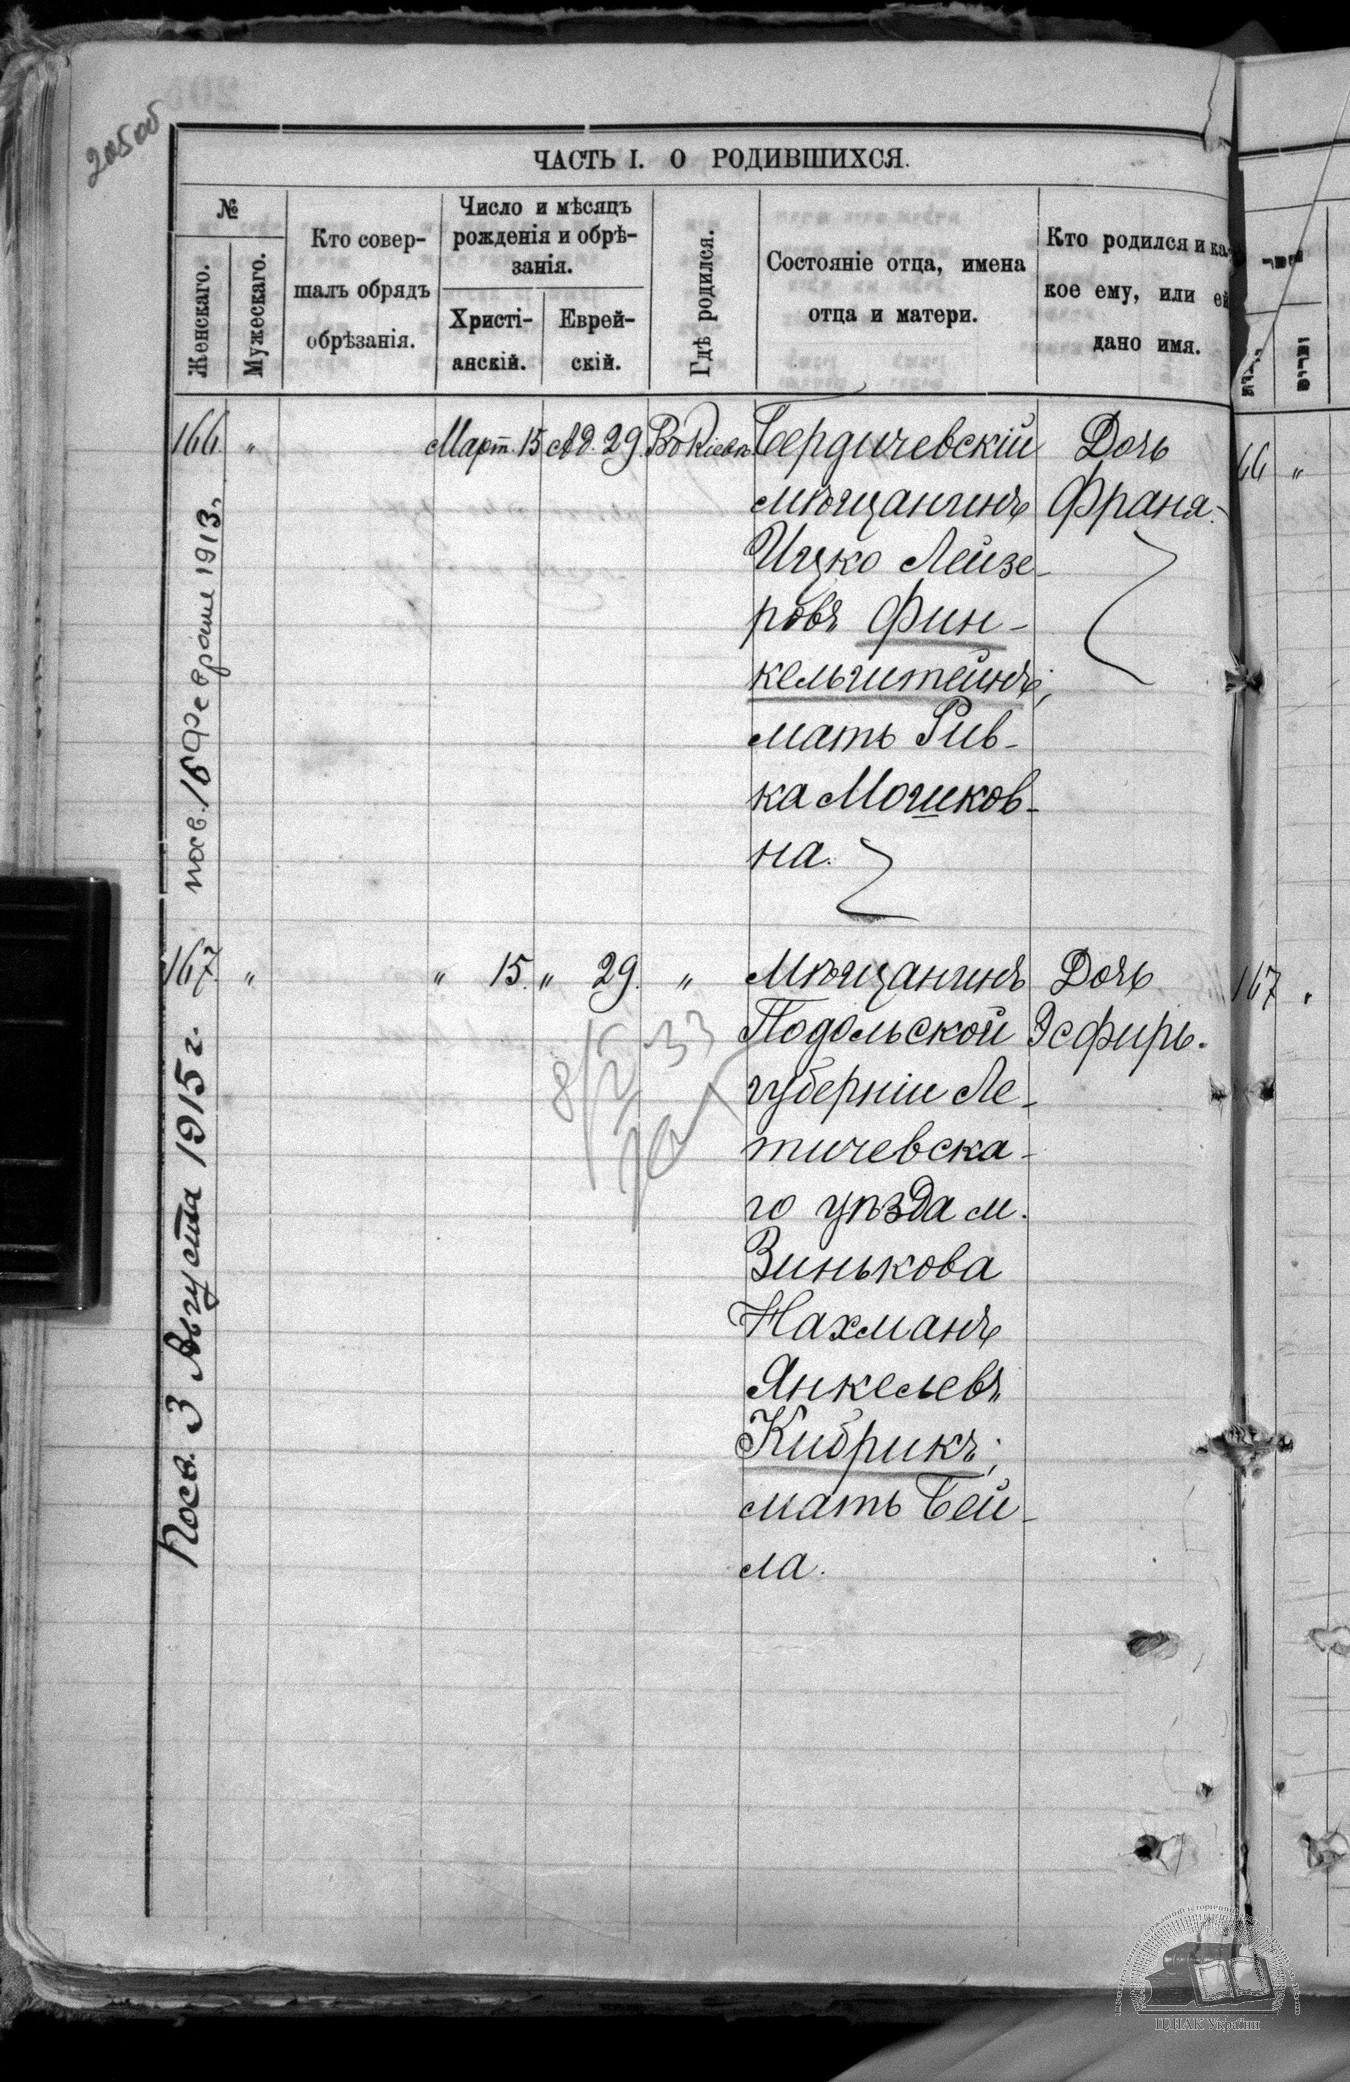 205об
ЧАСТЬ I. О РОДИВШИХСЯ.
№
Женскаго.
Мужескаго.
Кто совер-
шалъ обрядъ
обрѣзанія.
Число и мѣсяцъ
рожденія и обрѣ-
занія.
Христі-
анскій.
Еврей-
скій.
Гдѣ родился.
Состояніе отца, имена
отца и матери.
Кто родился и ка-
кое ему, или ей
дано имя.
166. " Март. 15 Ад. 29. Въ Кіевѣ
Бердичевскій
мѣщанинъ
Ицко Лейзе-
ровъ Фин-
кельштейнъ;
мать Рив-
ка Мошков-
на.
Дочь
Франя.
66 "
посв. 16 Февраля 1913 г.
167. " " 15. " 29. "
Мѣщанинъ
Подольской
губерніи Ле-
тичевска-
го уѣзда м.
Зинькова
Нахманъ
Янкелевъ
Кибрикъ;
мать Бей-
ла.
Дочь
Эсфирь.
167 "
Посв. 3 Августа 1915 г.
ЦДІАК України